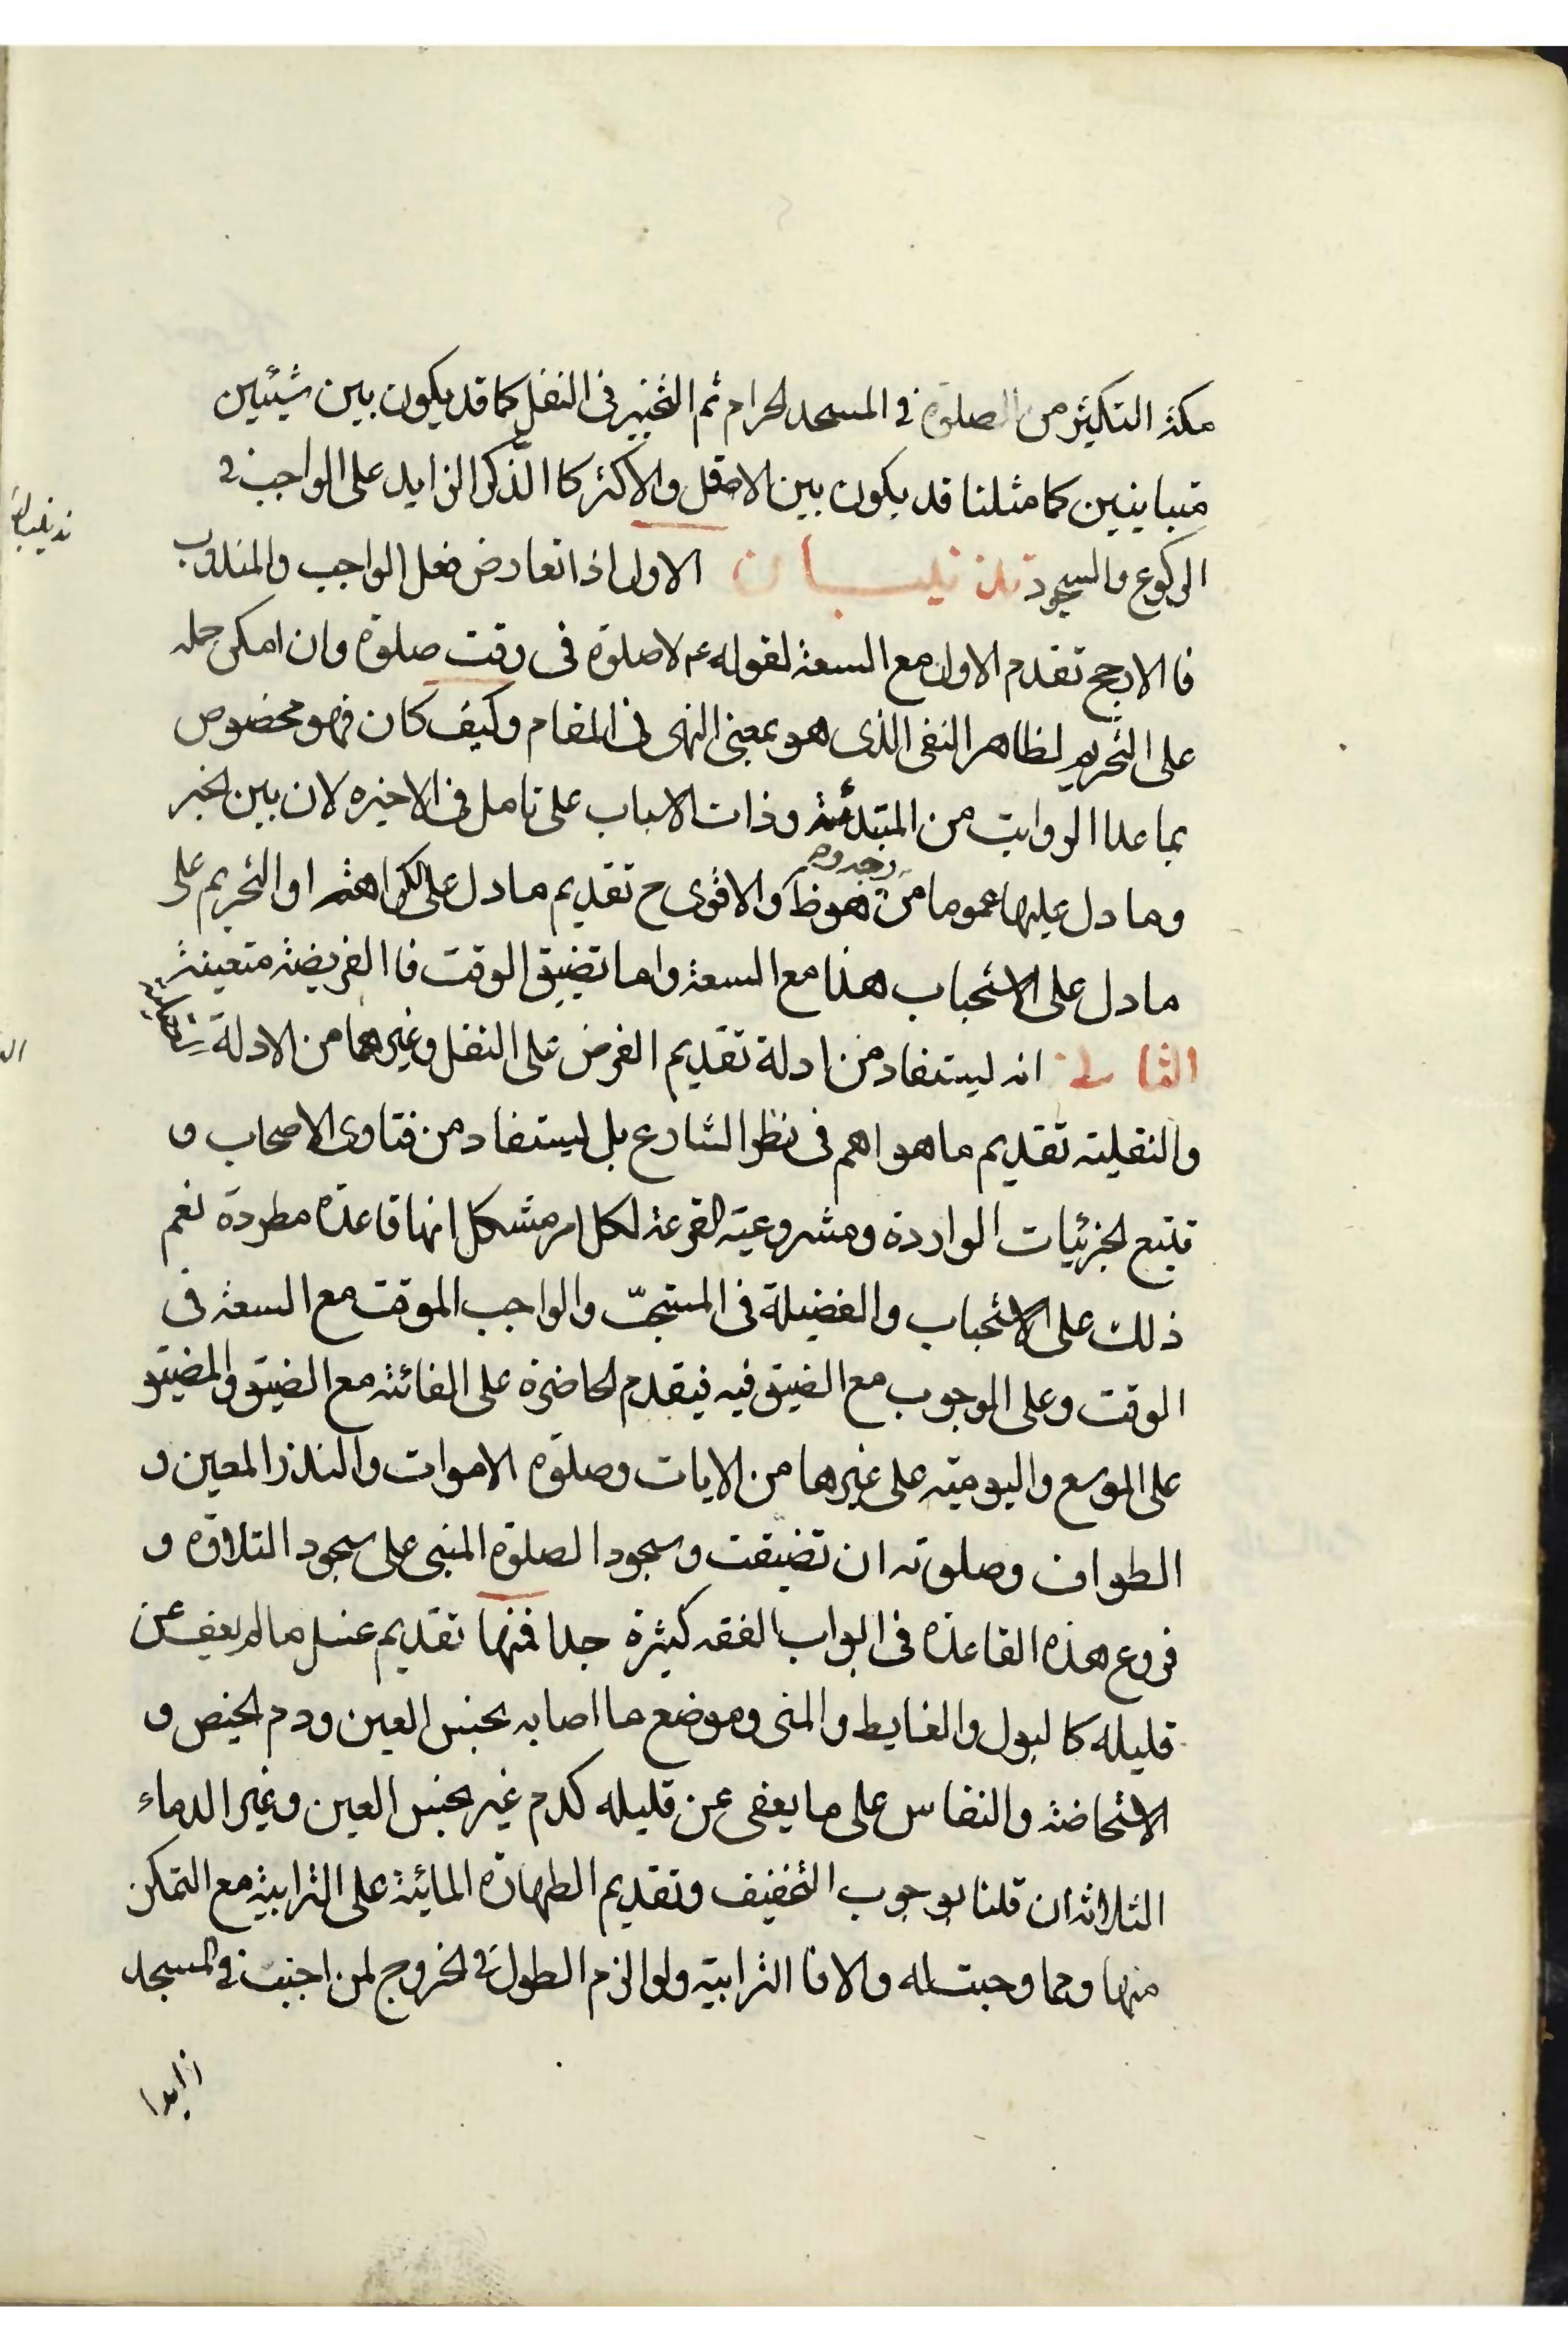 مكة التكثير من الصلوة في المسجد الحرام ثم التخيير فى النفل كما قد يكون بين شيئين
متباينين كما مثلنا قد يكون بين الاقل والاكثر كا الذكر الزايد على الواجب في
الركوع والسجود تذنيبان الاول اذا تعارض فعل الواجب والمندوب
فا الارجح تقدم الاول مع السعة لقوله ع لا صلوة فى وقت صلوة وان امكن حمله
على التحريم لظاهر النفى الذى هو بمعنى النهى فى المقام وكيف كان فهو مخصوص
بما عدا الرواتب من المبتدئة وذات الاسباب على تامل فى الاخيره لان بين الخبر
وما دل عليها عموما من وجه وهو ظ والاقوى ح تقديم ما دل على الكراهة او التحريم على
ما دل على الاستحباب هذا مع السعة واما تضيق الوقت فا الفريضة متعينة
الثانى انه يستفاد من ادلة تقديم الفرض على النفل وغيرهما من الادلة
والنقلية تقديم ما هو اهم فى نظر الشارع بل يستفاد من فتاوى الاصحاب و
تتبع الجزئيات الواردة ومشروعية القرعة لكل امر مشكل انها قاعدة مطردة نعم
ذلك على الاستحباب والفضيلة فى المستحب والواجب الموقت مع السعة فى
الوقت وعلى الوجوب مع الضيق فيه فيقدم الحاضرة على الفائتة مع الضيق والمضيق
على الموسع واليومية على غيرها من الايات وصلوة الاموات والنذر المعين و
الطواف وصلوته ان تضيقت وسجود الصلوة المنسى على سجود التلاوة و
فروع هذه القاعدة فى ابواب الفقه كثيرة جدا فمنها تقديم غسل ما لم يعف عن
قليله كا لبول والغايط والمنى وموضع ما اصابه نجس العين ودم الحيض و
الاستحاضة والنفاس على ما يعفى عن قليله كدم غير نجس العين وغير الدماء
الثلاثة ان قلنا بوجوب التخفيف وتقديم الطهارة المائية على الترابية مع التمكن
منها ومما وجبت له والا فا الترابية ولو الزم الطول فى الخروج لمن اجنب في المسجد
زايدا